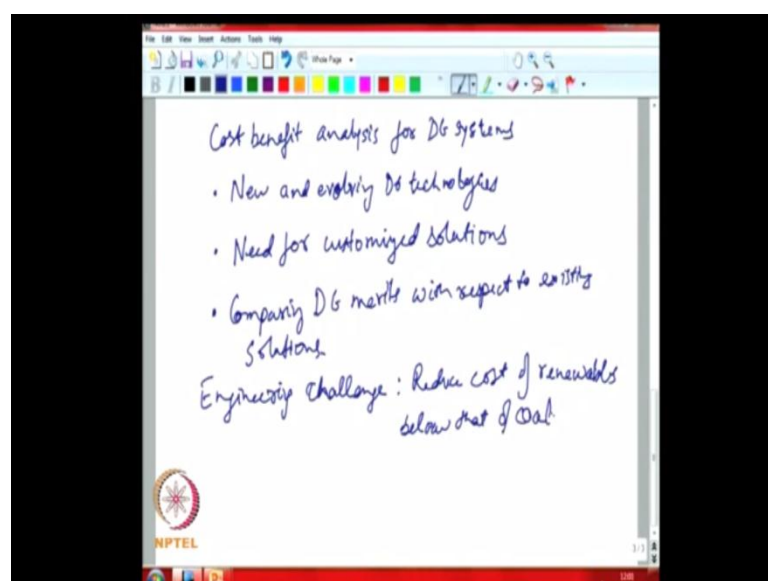 File Edit View Insert Actions Tools Help
Whole Page
Cost benefit analysis for DG systems
• New and evolving DG technologies
• Need for customized solutions
• Comparing DG merits with respect to existing
solutions
Engineering Challenge : Reduce cost of renewables
below that of Coal
NPTEL
3/3